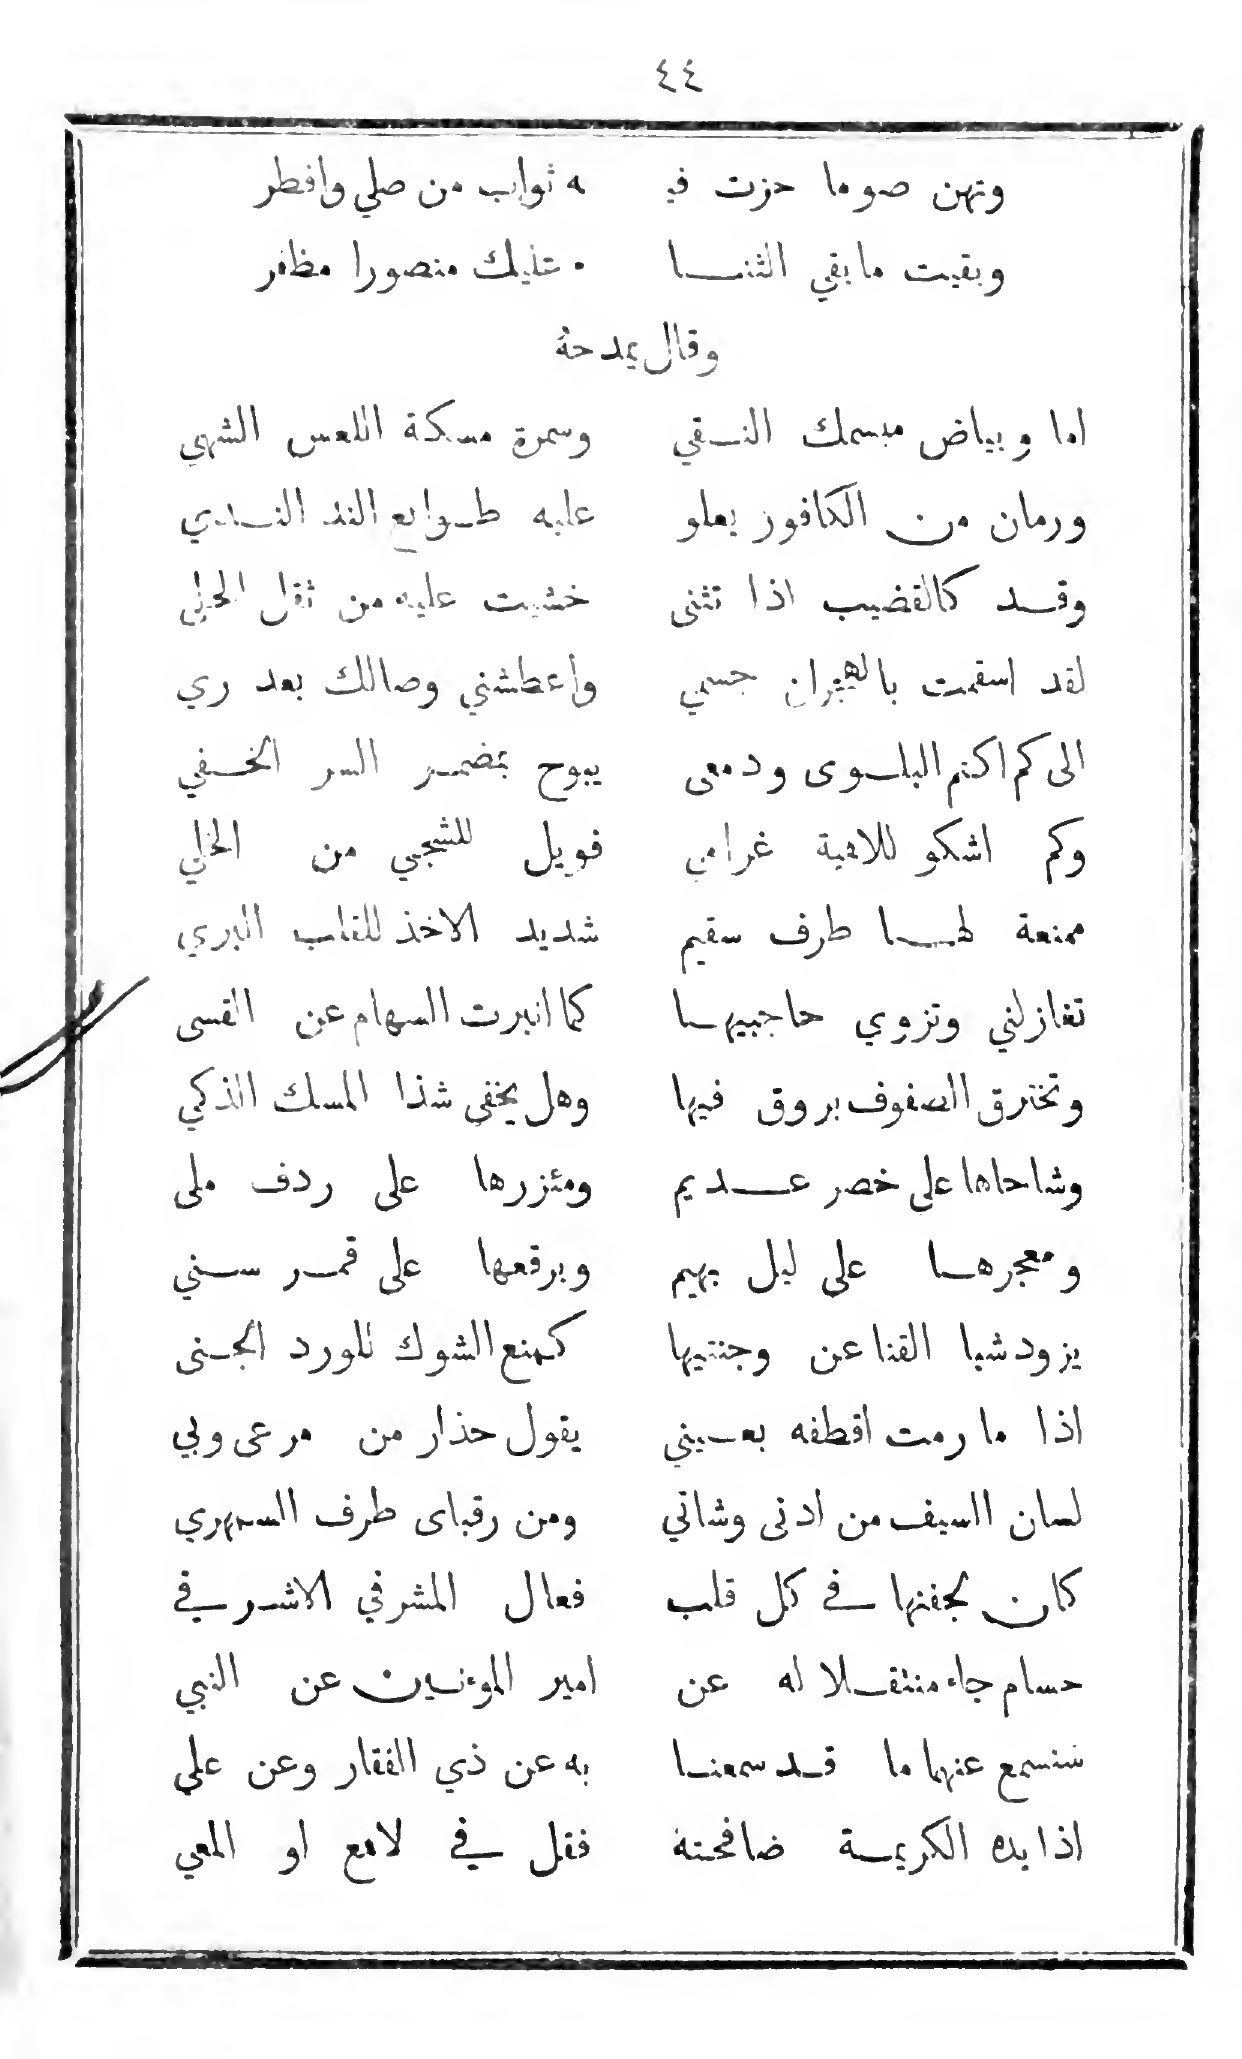 ٤٤
وتهن صوما حزت في ه ثواب من صلي وافطر
وبقيت ما بقي الثنا ء عليك منصورا مظفر
وقال يمدحه
اما وبياض مبسمك النقي وسمرة مسكة اللعس الشهي
ورمان من الكافور يعلو عليه طوابع الند الندي
وقد كالقضيب اذا تثنى خشيت عليه من ثقل الحلي
لقد اسقمت بالهجران جسمي واعطشني وصالك بعد ري
الى كم اكتم البلوى ودمعى يبوح بمضمر السر الخفي
وكم اشكو للاهية غرامي فويل للشجي من الخلي
ممنعة لها طرف سقيم شديد الاخذ للقلب البري
تغازلني وتزوي حاجبيها كما انبرت السهام عن القسى
وتخترق الصفوف بروق فيها وهل يخفى شذا المسك الذكي
وشاحاها على خصر عديم ومئزرها على ردف ملى
ومعجرها على ليل بهيم وبرقعها على قمر سني
يزود شبا القنا عن وجنتيها كمنع الشوك للورد الجنى
اذا ما رمت اقطفه بعيني يقول حذار من مرعى وبي
لسان السيف من ادنى وشاتي ومن رقباى طرف السمهري
كان بجفنها في كل قلب فعال المشرفي الاشرفي
حسام جاء منتقلا له عن امير الموءنين عن النبي
سنسمع عنهما ما قد سمعنا به عن ذي الفقار وعن علي
اذا يده الكريمة صافحته فقل في لامع او المعي